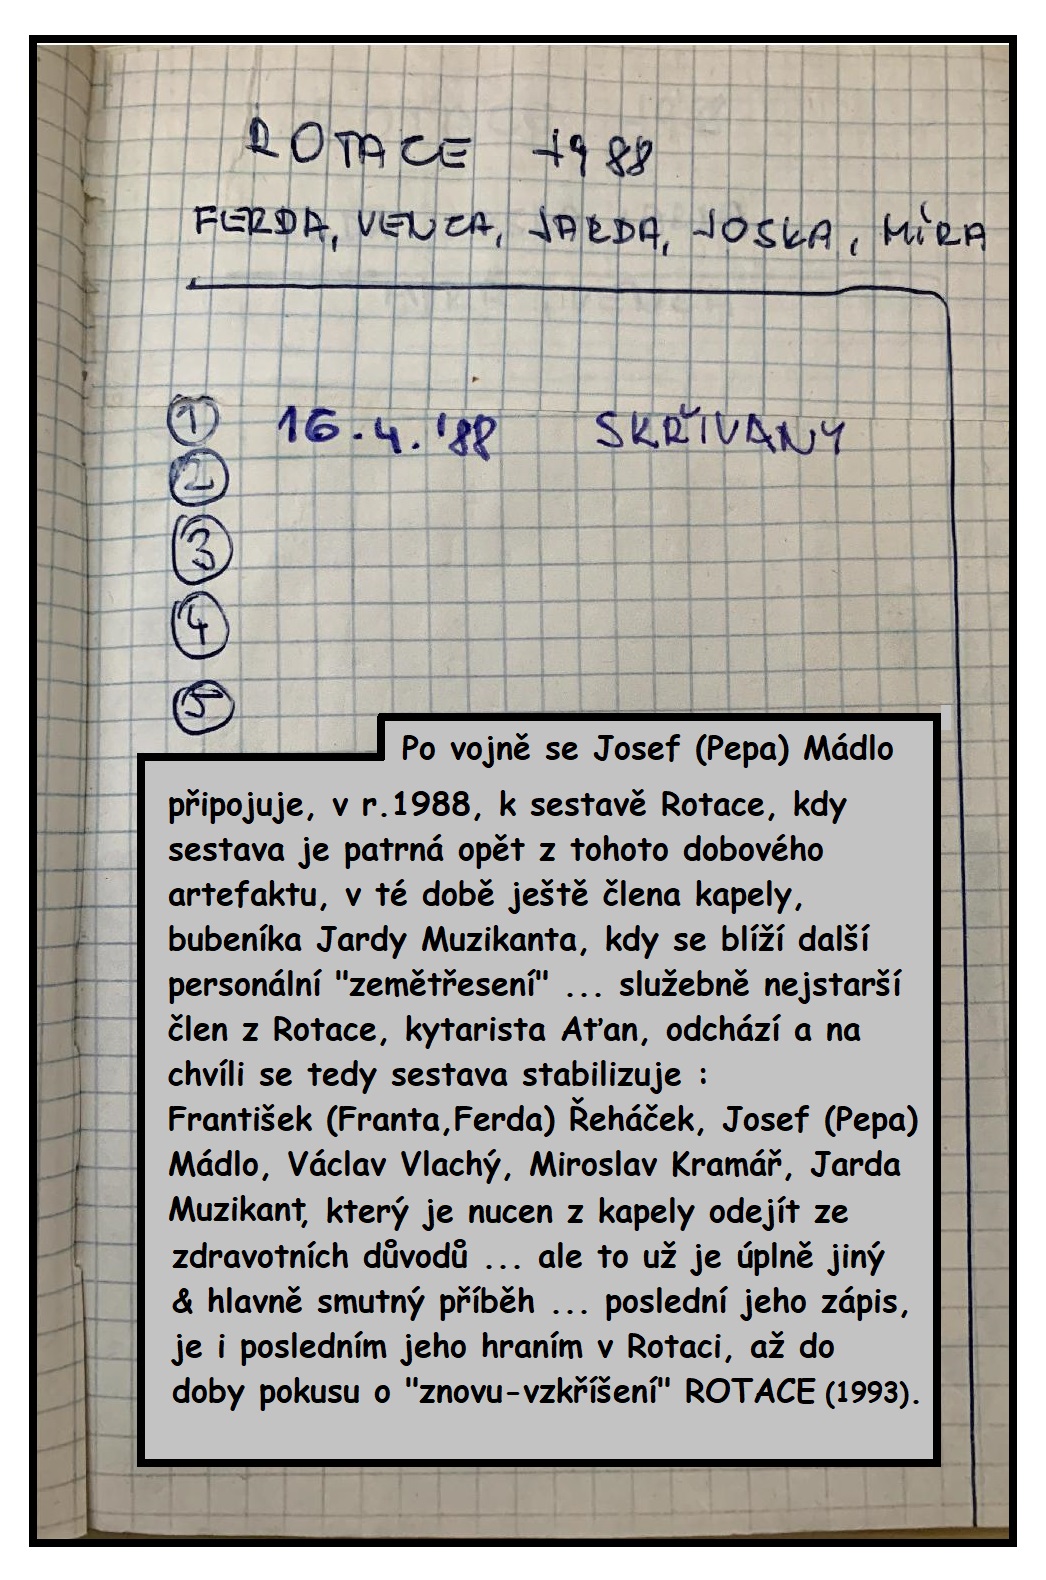 ROTACE 1988
FERDA, VENCA, JARDA, JOSKA, MÍRA
1 16.4.'88 SKŘIVANY
2
3
4
5
Po vojně se Josef (Pepa) Mádlo
připojuje, v r.1988, k sestavě Rotace, kdy
sestava je patrná opět z tohoto dobového
artefaktu, v té době ještě člena kapely,
bubeníka Jardy Muzikanta, kdy se blíží další
personální "zemětřesení" ... služebně nejstarší
člen z Rotace, kytarista Aťan, odchází a na
chvíli se tedy sestava stabilizuje :
František (Franta,Ferda) Řeháček, Josef (Pepa)
Mádlo, Václav Vlachý, Miroslav Kramář, Jarda
Muzikant, který je nucen z kapely odejít ze
zdravotních důvodů ... ale to už je úplně jiný
& hlavně smutný příběh ... poslední jeho zápis,
je i posledním jeho hraním v Rotaci, až do
doby pokusu o "znovu-vzkříšení" ROTACE (1993).